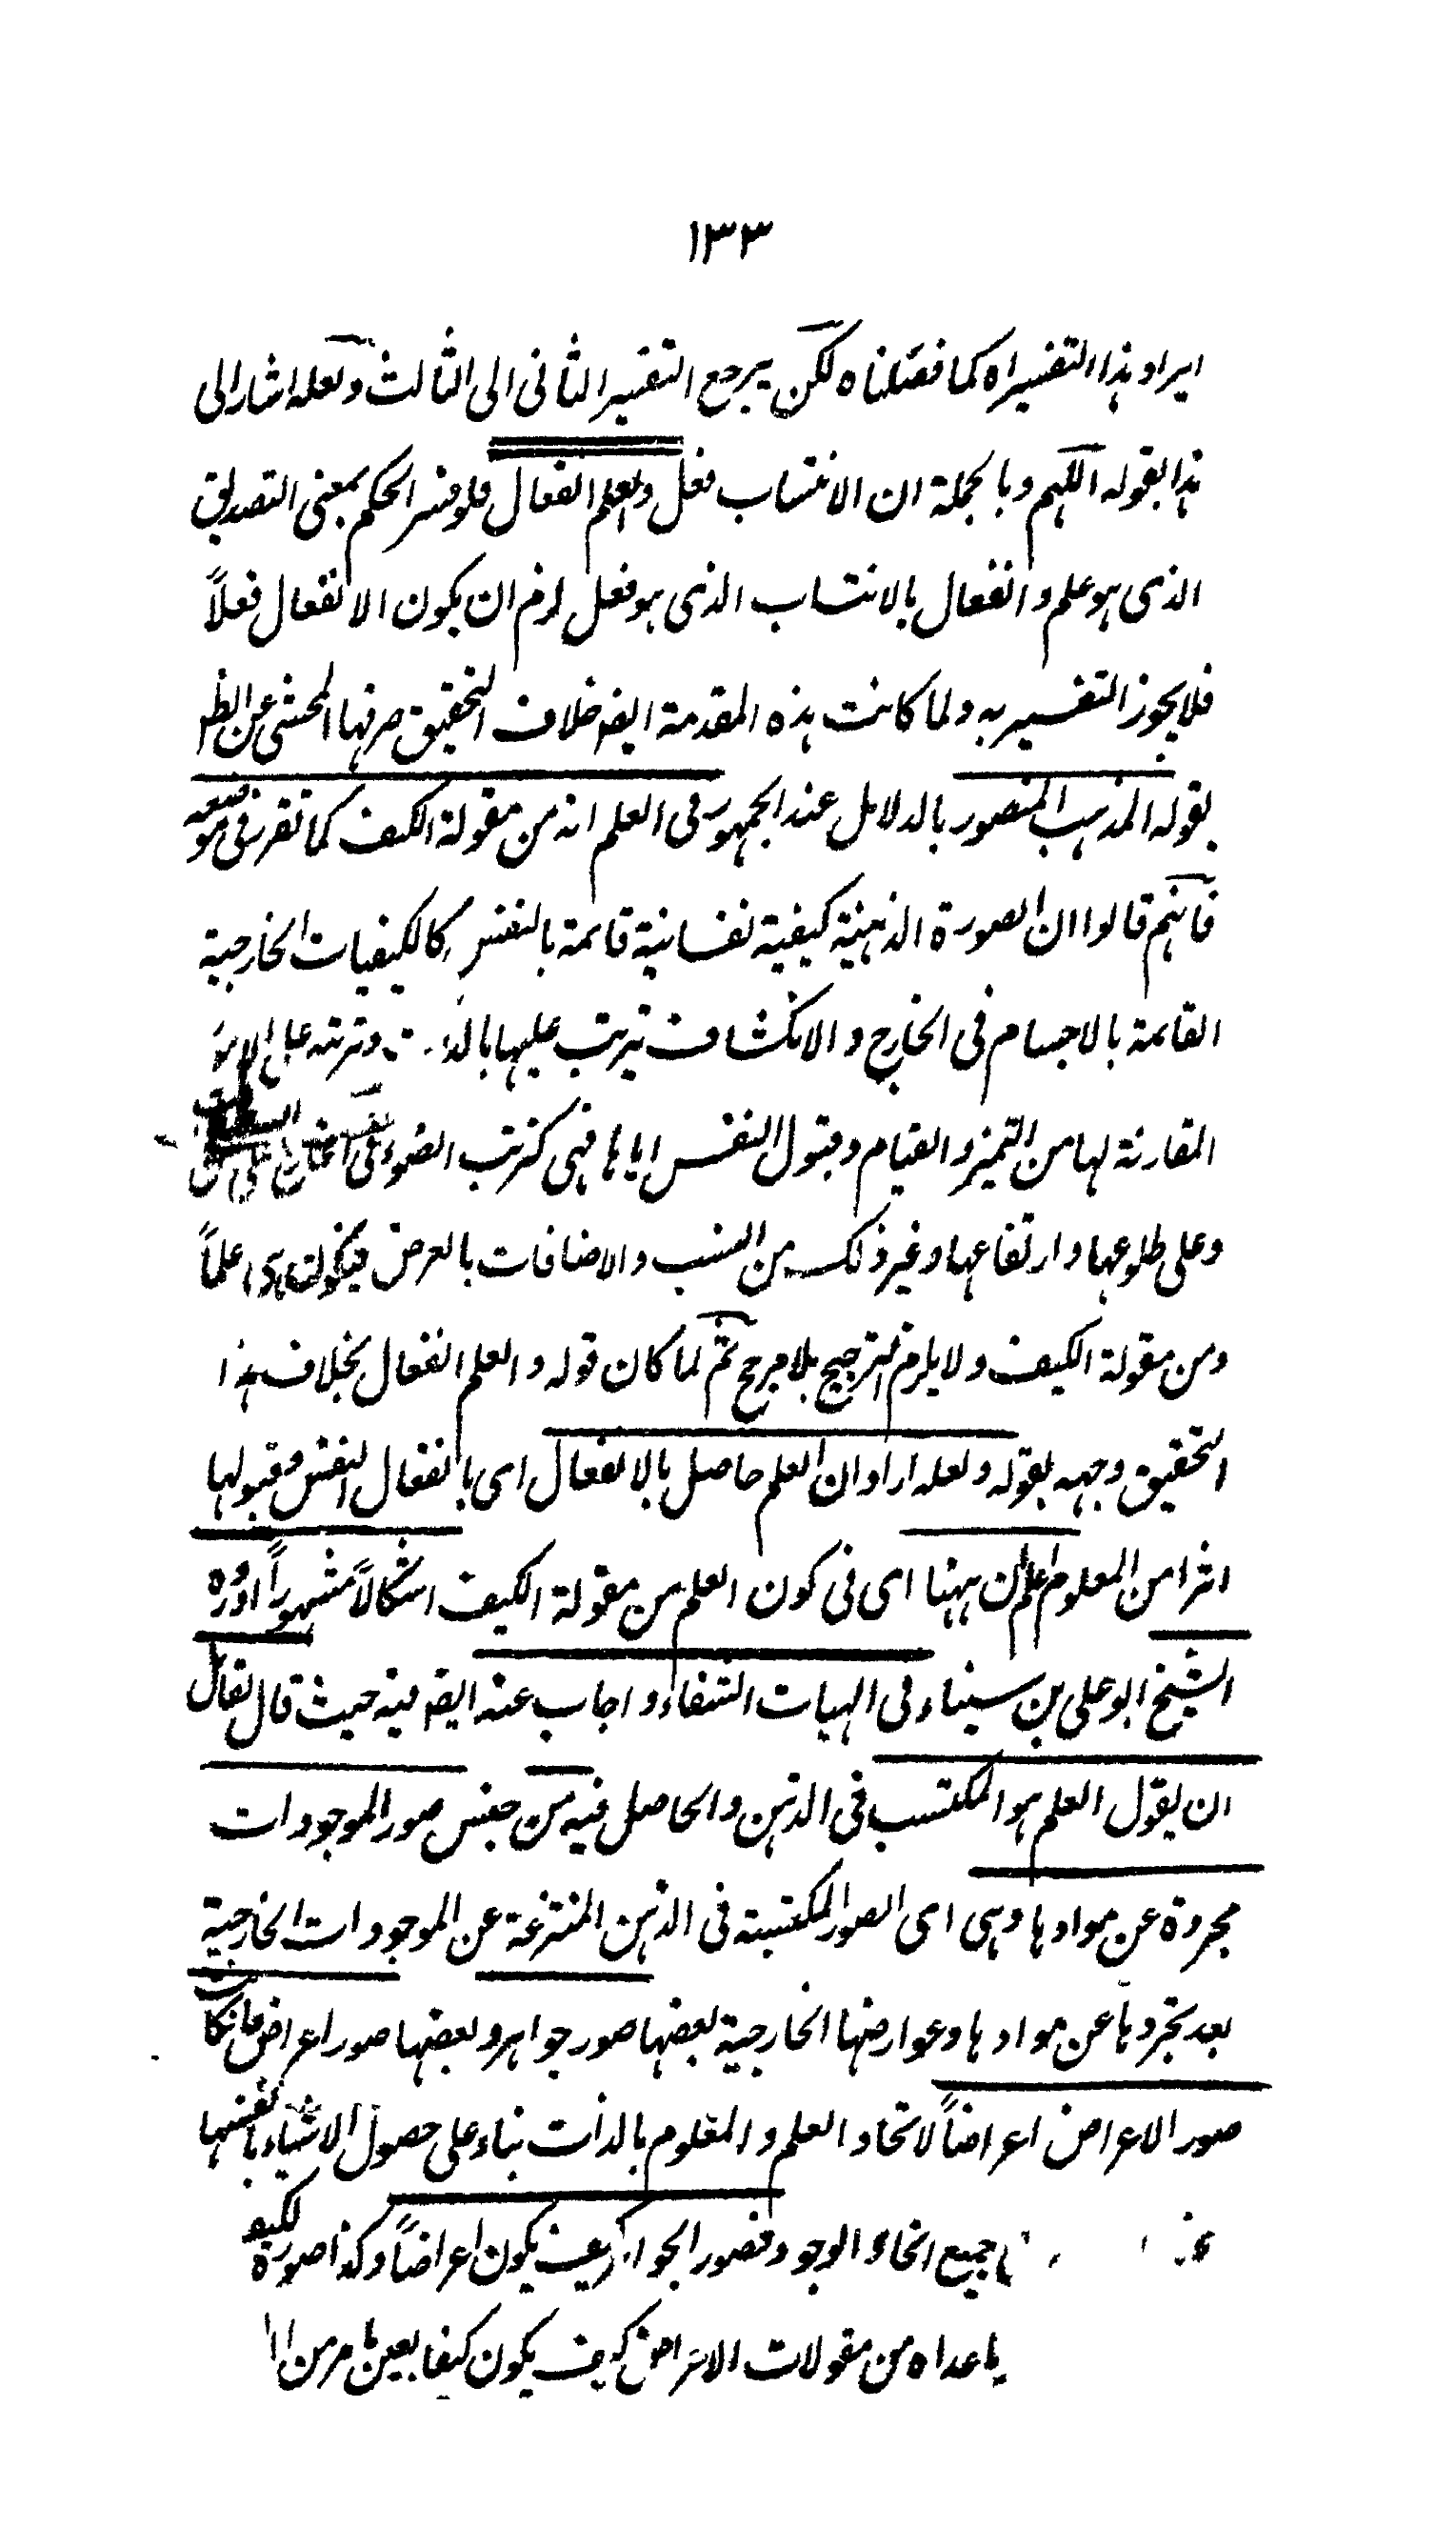 ١٣٣
ايراد هذا التفسير اه كما فصّلناه لكن يرجع التفسير الثانى الى الثالث ولعله اشار الى
هذا بقوله اللهم وبالجملة ان الانتساب فعل والعلم انفعال فلو فسر الحكم بمعنى التصديق
الذى هو علم وانفعال بالانتساب الذى هو فعل لزم ان يكون الانفعال فعلاً
فلا يجوز التفسير به ولما كانت هذه المقدمة ايضا خلاف التحقيق صرفها المحشى عن الظ
بقوله المذهب المنصور بالدلائل عند الجمهور فى العلم انه من مقولة الكيف كما تقرر فى موضعه
فانهم قالوا ان الصورة الذهنية كيفية نفسانية قائمة بالنفس كالكيفيات الخارجية
القائمة بالاجسام فى الخارج والانكشاف ترتب عليها وترتبه على
المقارنة لها من التميز والقيام وقبول النفس اياها فهى كترتب الضوء
وعلى طلوعها وارتفاعها وغير ذلك من النسب والاضافات بالعرض فيكون هى علماً
ومن مقولة الكيف ولا يلزم الترجيح بلا مرجح ثم لما كان قوله والعلم انفعال بخلاف هذا
التحقيق وجهه بقوله ولعله اراد ان العلم حاصل بالانفعال اى بانفعال النفس وقبولها
اثرا من المعلوم اعلم ان ههنا اى فى كون العلم من مقولة الكيف اشكالاً مشهوراً اورده
الشيخ ابو على بن سيناء فى الهيات الشفاء واجاب عنه ايضا فيه حيث قال لقائل
ان يقول العلم هو المكتسب فى الذهن والحاصل فيه من جنس صور الموجودات
مجردة عن موادها وهى اى الصور المكتسبة فى الذهن المنتزعة عن الموجودات الخارجية
بعد تجردها عن موادها وعوارضها الخارجية بعضها صور جواهر وبعضها صور اعراض فان كانت
صور الاعراض اعراضاً لاتحاد العلم والمعلوم بالذات بناء على حصول الاشياء بانفسها
جميع انحاء الوجود فصور الجواهر كيف يكون اعراضاً وكذا صورة
ما عداه من مقولات الاعراض كيف يكون كيفا بعين ما مر من